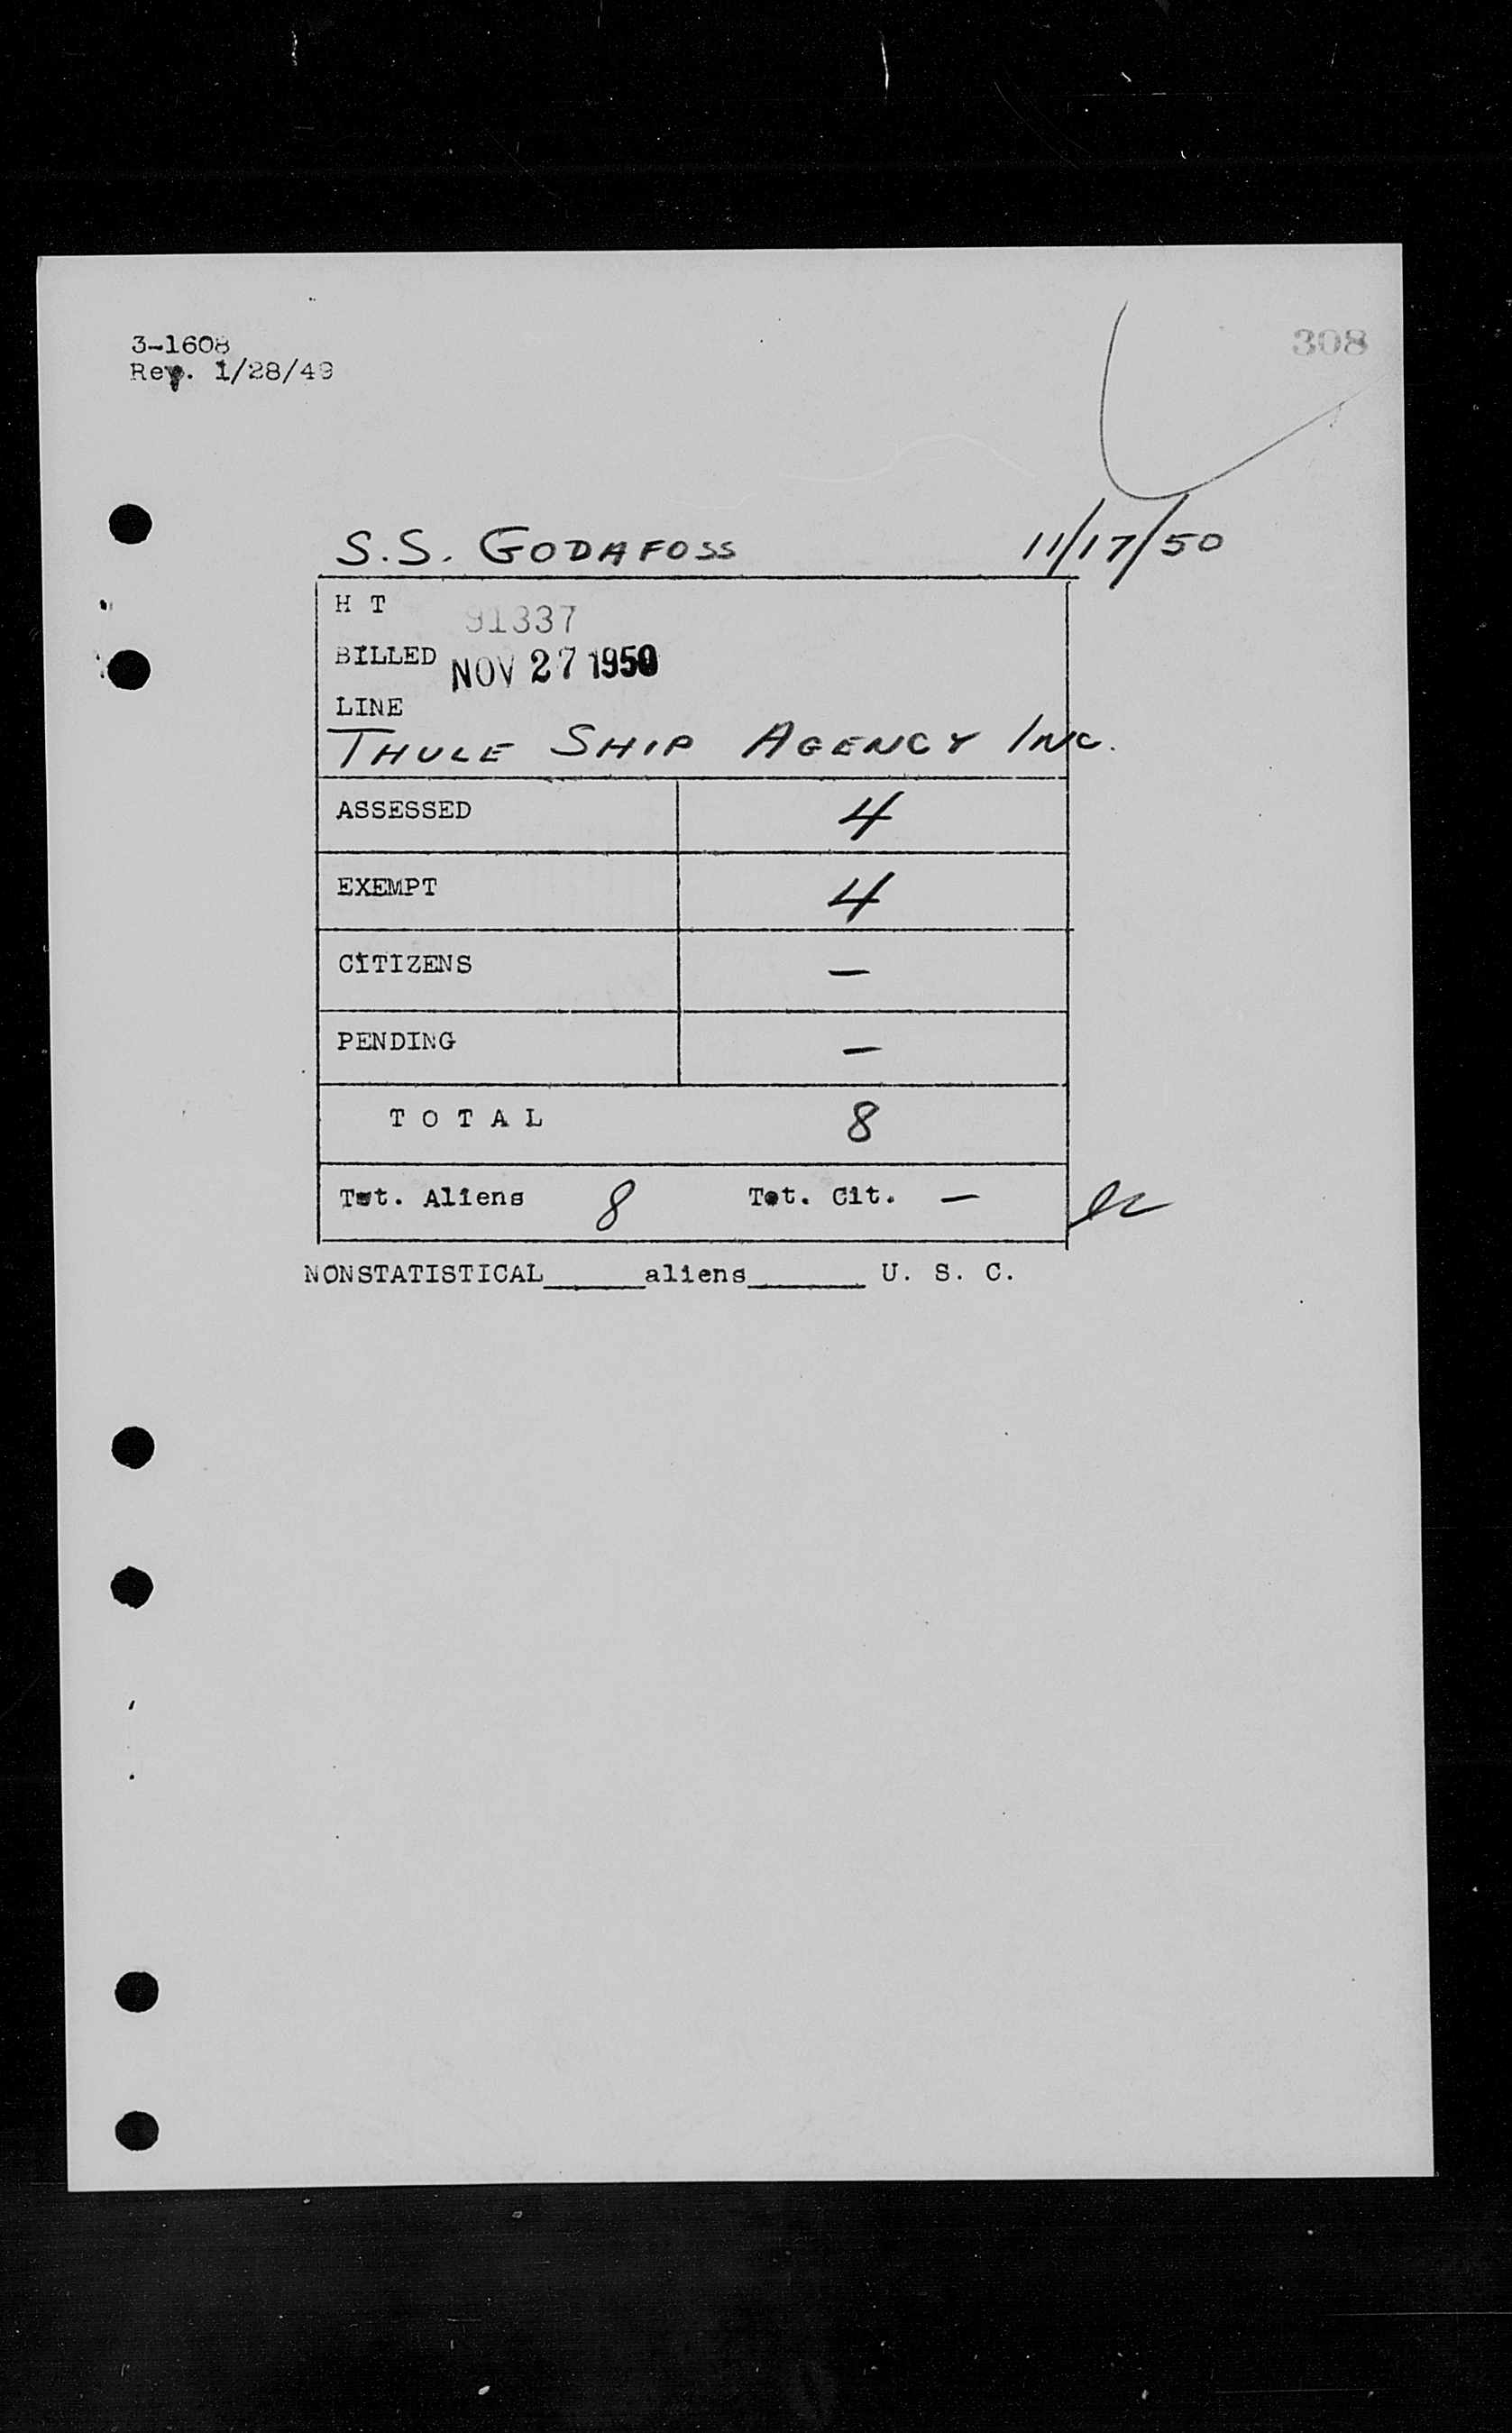 308
3-1608
Rev. 1/28/49
S.S. GODAFOSS 11/17/50
H T 91337
BILLED NOV 27 1950
LINE
THULE SHIP AGENCY INC.
ASSESSED 4
EXEMPT 4
CITIZENS —
PENDING —
T O T A L 8
Tot. Aliens 8 Tot. Cit. —
NONSTATISTICAL______aliens_______ U. S. C.